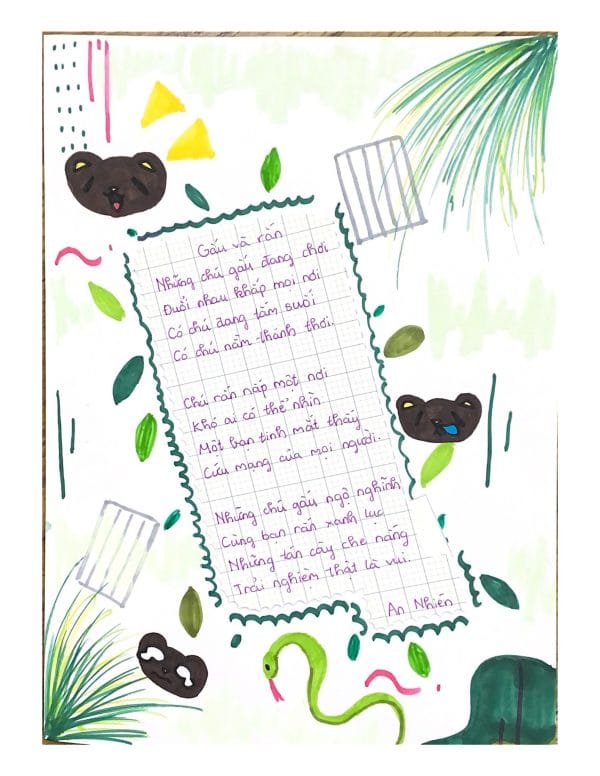 Gấu và rắn
Những chú gấu đang chơi
Đuổi nhau khắp mọi nơi
Có chú đang tắm suối
Có chú nằm thảnh thơi.
Chú rắn nấp một nơi
Khó ai có thể nhìn
Một bạn tinh mắt thấy
Cứu mạng của mọi người.
Những chú gấu ngộ nghĩnh
Cùng bạn rắn xanh lục
Những tán cây che nắng
Trải nghiệm thật là vui.
An Nhiên